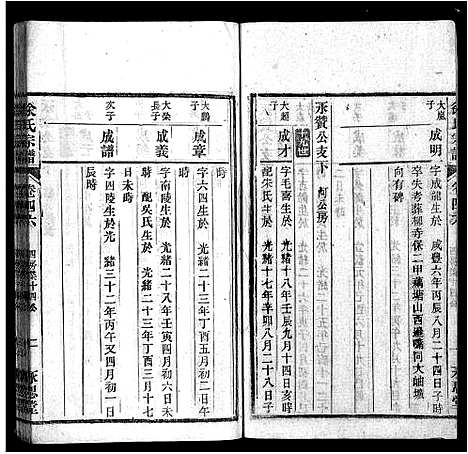 大嵐子
成明
字成龍生於
咸豐六年丙辰八月二十四日子時
卒失考葬柳寺保二甲藕塘山西邊嘴向大岫塘
向有碑
永贊公支下
河公房
大超子
成才
字毛喜生於
光緒十八年壬辰九月十四日亥時
配朱氏生於
光緒十七年辛卯八月二十八日子
時
大鵬子
成章
字六四生於
光緒二十三年丁酉五月初二日午
時
大榮長子
成義
字南陵生於
光緒二十八年壬寅四月初六日未
時
配吳氏生於
光緒二十三年丁酉三月十七
日未時
次子
成譜
字四陵生於光
緒三十二年丙午又四月初一日
辰時
徐氏宗譜
卷四六
承思堂